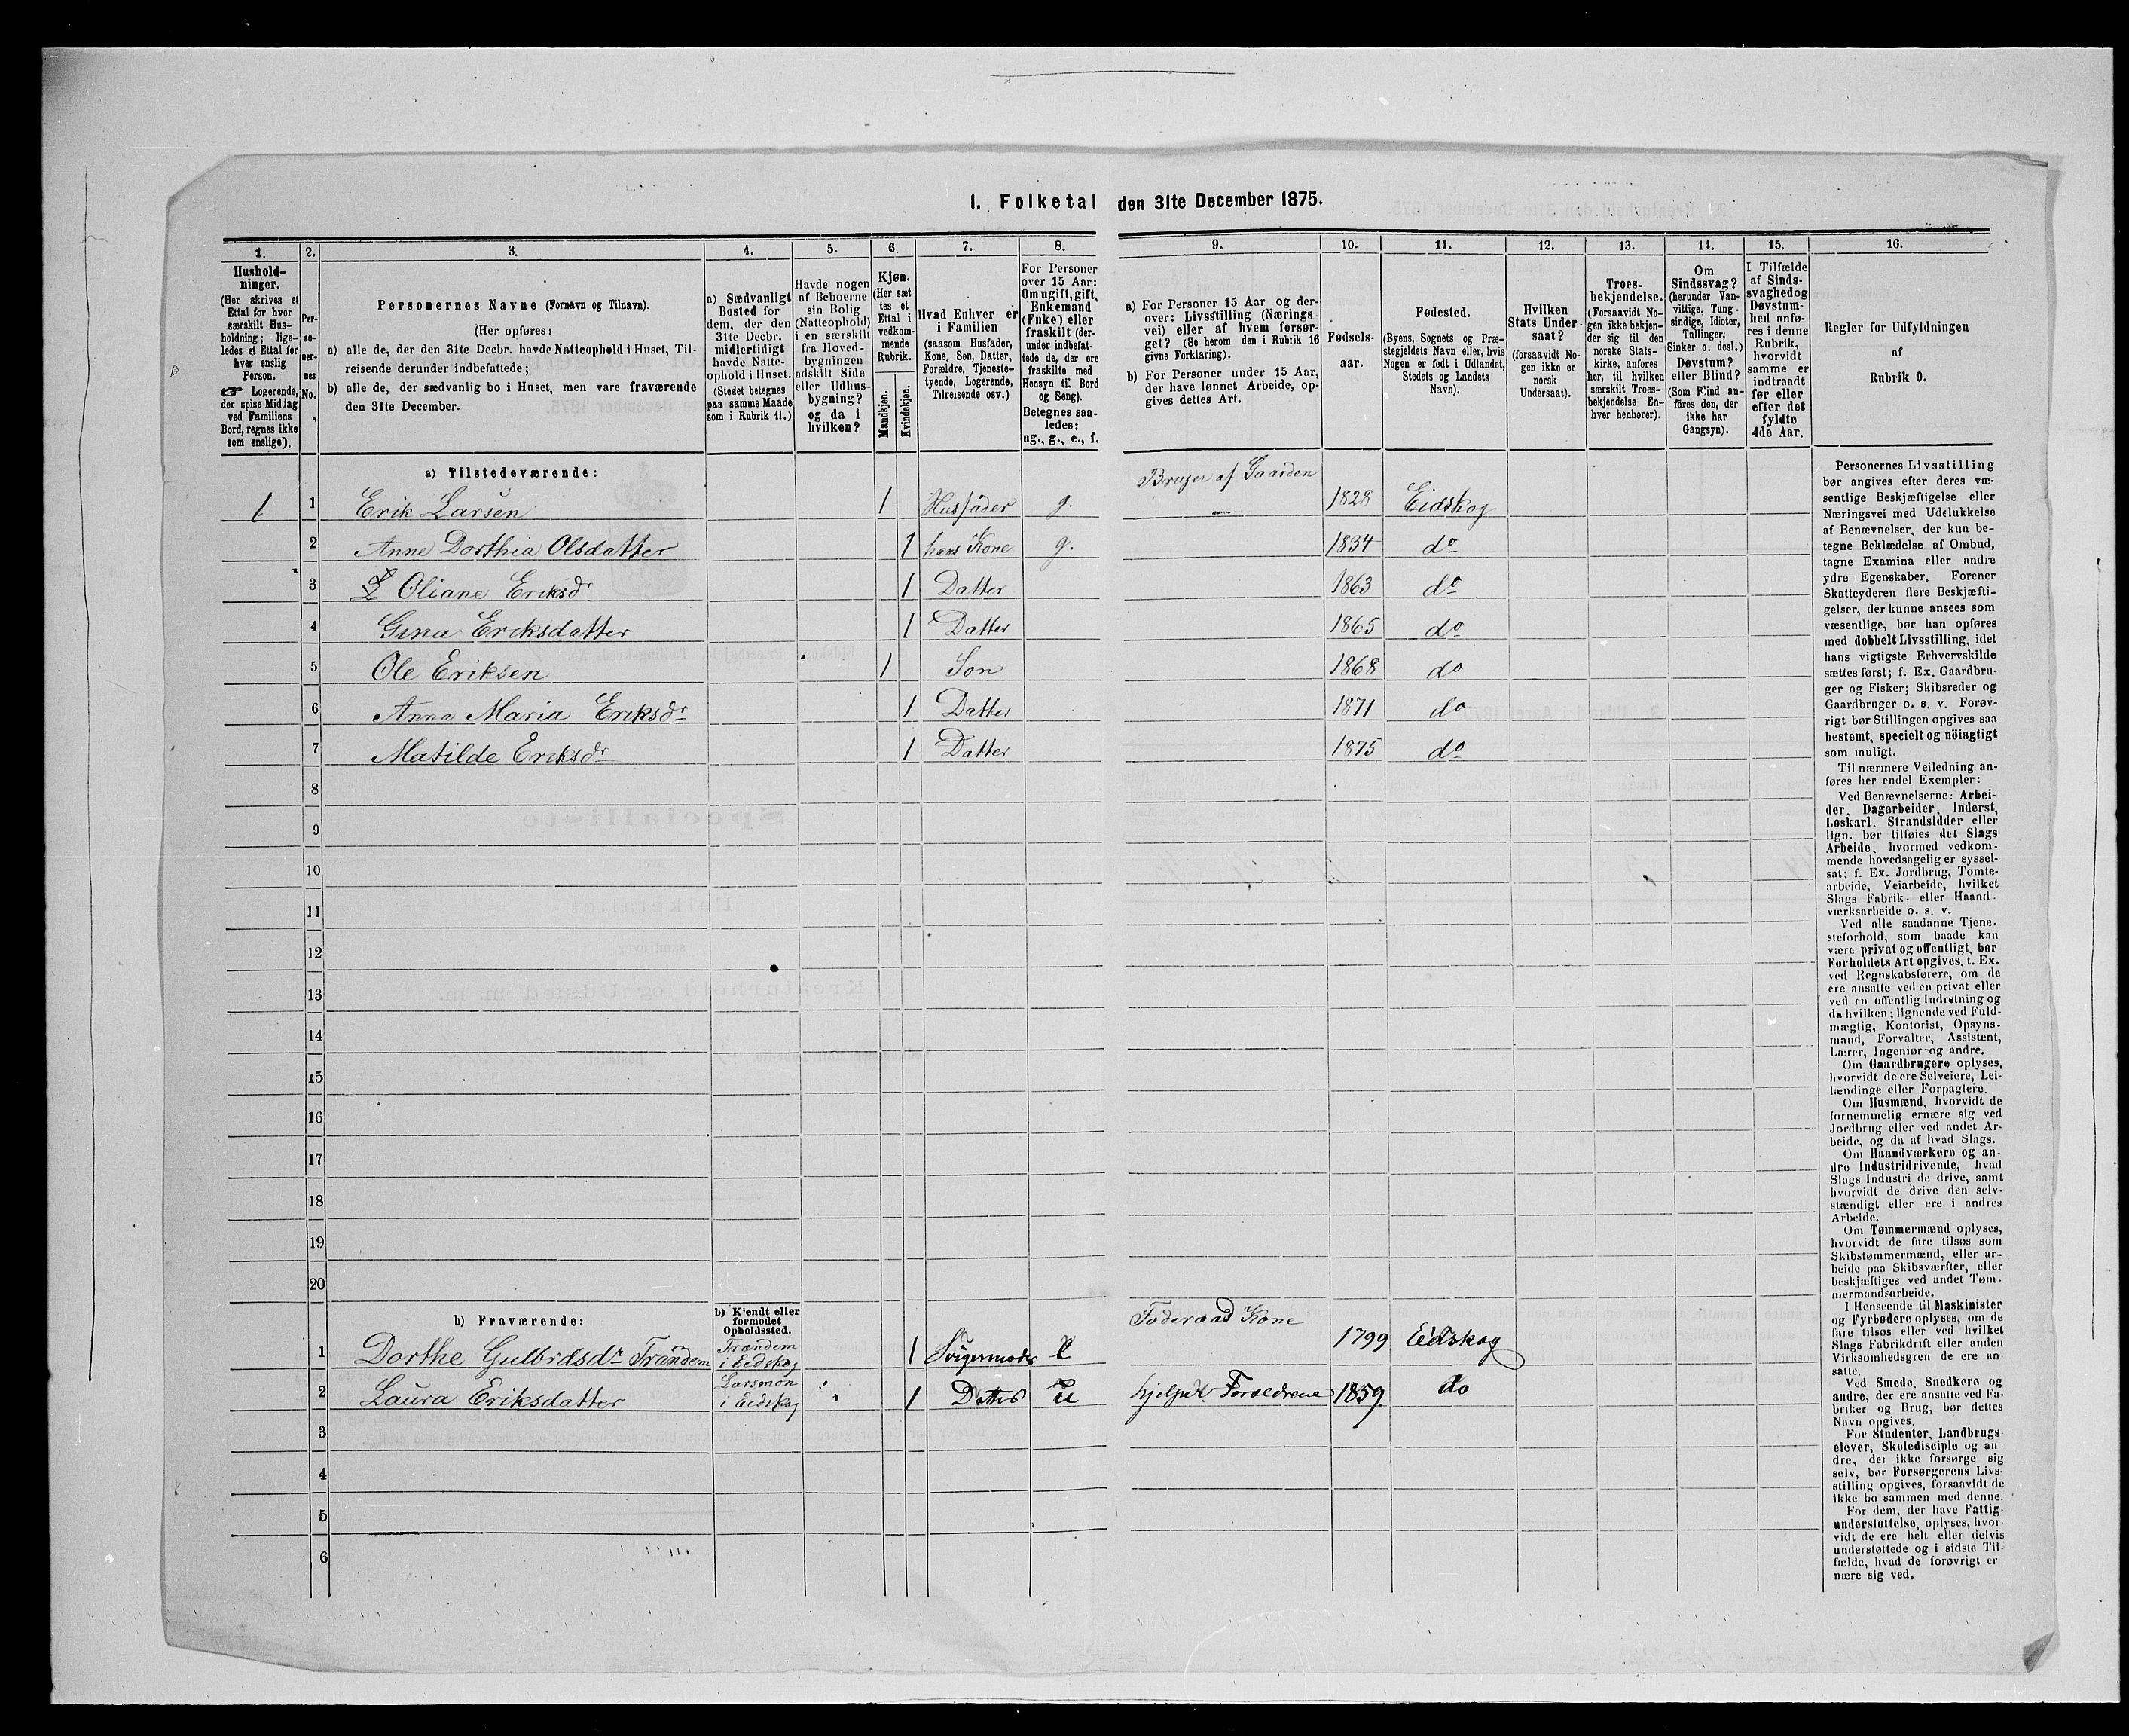 I. Folketal den 31te December 1875.
1.
Hushold-
ninger.
(Her skrives et
Ettal for hver
særskilt Hus-
holdning; lige-
ledes et Ettal for
hver enslig
Person.
☞ Logerende,
der spise Middag
ved Familiens
Bord, regnes ikke
som enslige).
2.
Per-
so-
ner-
nes
No.
3.
Personernes Navne (Fornavn og Tilnavn).
(Her opføres:
a) alle de, der den 31te Decbr. havde Natteophold i Huset, Til-
reisende derunder indbefattede;
b) alle de, der sædvanlig bo i Huset, men vare fraværende
den 31te December.
4.
a) Sædvanligt
Bosted for
dem, der den
31te Decbr.
midlertidigt
havde Natte-
ophold i Huset.
(Stedet betegnes
paa samme Maade
som i Rubrik 11.)
5.
Havde nogen
af Beboerne
sin Bolig
(Natteophold)
i en særskilt
fra Hoved-
bygningen
adskilt Side
eller Udhus-
bygning?
og da i
hvilken?
6.
Kjøn.
(Her sæt
tes et
Ettal i
vedkom-
mende
Rubrik.
Mandkjøn.
Kvindekjøn.
7.
Hvad Enhver er
i Familien
(saasom Husfader,
Kone, Søn, Datter,
Forældre, Tjeneste-
tyende, Logerende,
Tilreisende osv.)
8.
For Personer
over 15 Aar:
Om ugift, gift,
Enkemand
(Enke) eller
fraskilt (der-
under indbefat-
tede de, der ere
fraskilte med
Hensyn til Bord
og Seng).
Betegnes saa-
ledes:
ug., g., e., f.
9.
a) For Personer 15 Aar og der-
over: Livsstilling (Nærings
vei) eller af hvem forsør-
get? (Se herom den i Rubrik 16
givne Forklaring).
b) For Personer under 15 Aar,
der have lønnet Arbeide, op-
gives dettes Art.
10.
Fødsels-
aar.
11.
Fødested.
(Byens, Sognets og Præ-
stegjeldets Navn eller, hvis
Nogen er født i Udlandet,
Stedets og Landets
Navn).
12.
Hvilken
Stats Under-
saat?
(forsaavidt No-
gen ikke er
norsk
Undersaat).
13.
Troes-
bekjendelse.
(Forsaavidt No-
gen ikke bekjen-
der sig til den
norske Stats-
kirke, anføres
her, til hvilken
særskilt Troes-
bekjendelse En-
hver henhører).
14.
Om
Sindssvag?
(herunder Van-
vittige, Tung-
sindige, Idioter,
Tullinger,
Sinker o. desl.)
Døvstum?
eller Blind?
(Som Blind an-
føres den, der
ikke har
Gangsyn).
15.
I Tilfælde
af Sinds-
svaghed og
Døvstum-
hed anfø-
res i denne
Rubrik,
hvorvidt
samme er
indtraadt
før eller
efter det
fyldte
4de Aar.
16.
Regler for Udfyldningen
af
Rubrik 9.
a) Tilstedeværende:
Bruger af Gaarden
1 1 Erik Larsen 1 Husfader g. 1828 Eidskog
2 Anne Dorthia Olsdatter 1 hans Kone g. 1834 do
3 Oliane Eriksdr 1 Datter 1863 do
4 Gina Eriksdatter 1 Datter 1865 do
5 Ole Eriksen 1 Søn 1868 do
6 Anna Maria Eriksdr 1 Datter 1871 do
7 Matilde Eriksdr 1 Datter 1875 do
8
9
10
11
12
13
14
15
16
17
18
19
20
b) Fraværende:
b) Kjendt eller
formodet
Opholdssted.
Foderaads Kone
1 Dorthe Gulbrdsdr Trandem Trandem i Eidskog 1 Svigermoder e 1799 Eidskog
2 Laura Eriksdatter Larsmon i Eidskog 1 Datter u hjelper Forældrene 1859. do
3
4
5
6
Personernes Livsstilling
bør angives efter deres væ-
sentlige Beskjæftigelse eller
Næringsvei med Udelukkelse
af Benævnelser, der kun be-
tegne Beklædelse af Ombud,
tagne Examina eller andre
ydre Egenskaber. Forener
Skatteyderen flere Beskjæfti-
gelser, der kunne ansees som
væsentlige, bør han opføres
med dobbelt Livsstilling, idet
hans vigtigste Erhvervskilde
sættes først; f. Ex. Gaardbru-
ger og Fisker; Skibsreder og
Gaardbruger o. s. v. Forøv-
rigt bør Stillingen opgives saa
bestemt, specielt og nöiagtigt
som muligt.
Til nærmere Veiledning an-
føres her endel Exempler:
Ved Benævnelserne: Arbei-
der, Dagarbeider, Inderst,
Løskarl, Strandsidder eller
lign. bør tilføies det Slags
Arbeide, hvormed vedkom-
mende hovedsagelig er syssel-
sat; f. Ex. Jordbrug, Tomte-
arbeide, Veiarbeide, hvilket
Slags Fabrik- eller Haand-
værksarbeide o. s. v.
Ved alle saadanne Tjene-
steforhold, som baade kan
være privat og offentligt, bør
Forholdets Art opgives, t. Ex.
ved Regnskabsførere, om de
ere ansatte ved en privat eller
ved en offentlig Indretning og
da hvilken; lignende ved Fuld-
mægtig, Kontorist, Opsyns-
mand, Forvalter, Assistent,
Lærer, Ingeniør og andre.
Om Gaardbrugere oplyses,
hvorvidt de ere Selveiere, Lei-
lændinge eller Forpagtere.
Om Husmænd, hvorvidt de
fornemmelig ernære sig ved
Jordbrug eller ved andet Ar-
beide, og da af hvad Slags.
Om Haandværkere og an-
dre Industridrivende, hvad
Slags Industri de drive, samt
hvorvidt de drive den selv-
stændigt eller ere i andres
Arbeide.
Om Tømmermænd oplyses,
hvorvidt de fare tilsøs som
Skibstømmermænd, eller ar-
beide paa Skibsværfter, eller
beskjæftiges ved andet Tøm-
mermandsarbeide.
I Henseende til Maskinister
og Fyrbødere oplyses, om de
fare tilsøs eller ved hvilket
Slags Fabrikdrift eller anden
Virksomhedsgren de ere an-
satte.
Ved Smede, Snedkere og
andre, der ere ansatte ved Fa-
briker og Brug, bør dettes
Navn opgives.
For Studenter, Landbrugs-
elever, Skoledisciple og an-
dre, der ikke forsørge sig
selv, bør Forsørgerens Livs-
stilling opgives, forsaavidt de
ikke bo sammen med denne.
For dem, der have Fattig-
understøttelse, oplyses, hvor-
vidt de ere helt eller delvis
understøttede og i sidste Til-
fælde, hvad de forøvrigt er
nære sig ved.